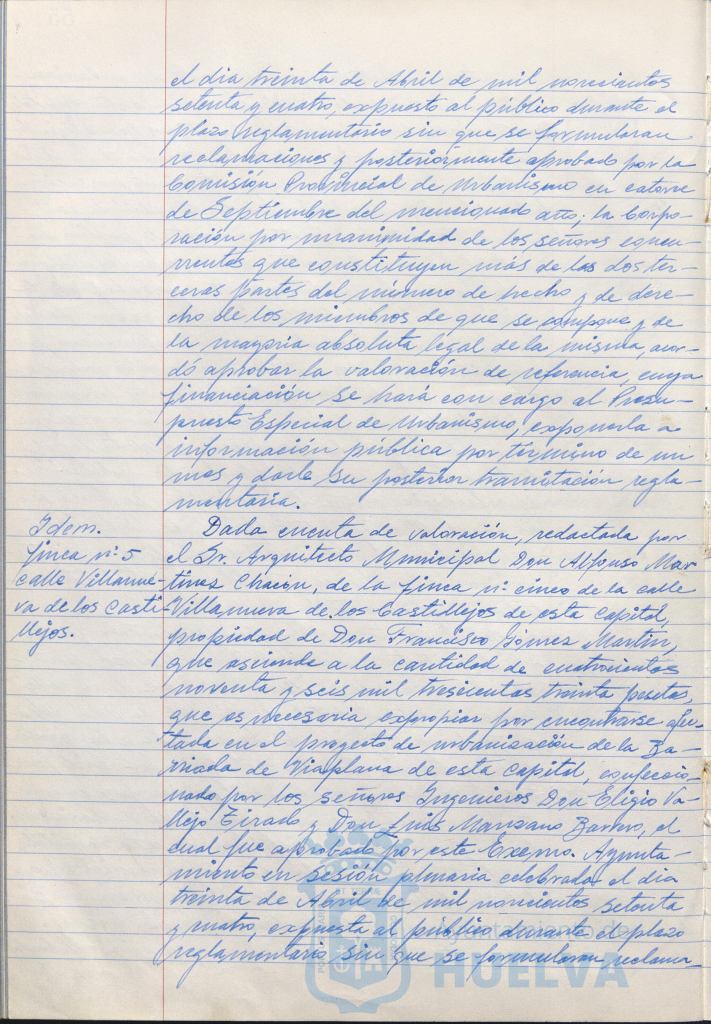 el dia treinta de Abril de mil novecientos
setenta y cuatro, expuesto al público durante el
plazo reglamentario sin que se formularan
reclamaciones y posteriormente aprobado por la
Comisión Provincial de Urbanismo en catorce
de Septiembre del mencionado año; la Corpo-
ración por unanimidad de los señores concu-
rrentes que constituyen más de las dos ter-
ceras partes del número de hecho y de dere-
cho de los miembros de que se compone y de
la mayoría absoluta legal de la misma, acor-
dó aprobar la valoración de referencia, cuya
financiación se hará con cargo al Presu-
puesto Especial de Urbanismo, exponerla a
información pública por término de un
mes y darle su posterior tramitación regla-
mentaria.
Idem.
finca nº 5
calle Villanue-
va de los Casti-
llejos.
Dada cuenta de valoración, redactada por
el Sr. Arquitecto Municipal Don Alfonso Mar
tínez Chacón, de la finca nº cinco de la calle
Villanueva de los Castillejos de esta capital,
propiedad de Don Francisco Gómez Martín,
que asciende a la cantidad de cuatrocientos
noventa y seis mil trescientas treinta pesetas,
que es necesaria expropiar por encontrarse afec-
tada en el proyecto de urbanización de la Ba-
rriada de Viaplana de esta capital, confeccio-
nado por los señores Ingenieros Don Eligio Va-
llejo Tirado y Don Luis Manzano Barrero, el
cual fue aprobado por este Excmo. Ayunta-
miento en sesión plenaria celebrada el dia
treinta de Abril de mil novecientos setenta
y cuatro, expuesta al público durante el plazo
reglamentario sin que se formularan reclama-
HUELVA